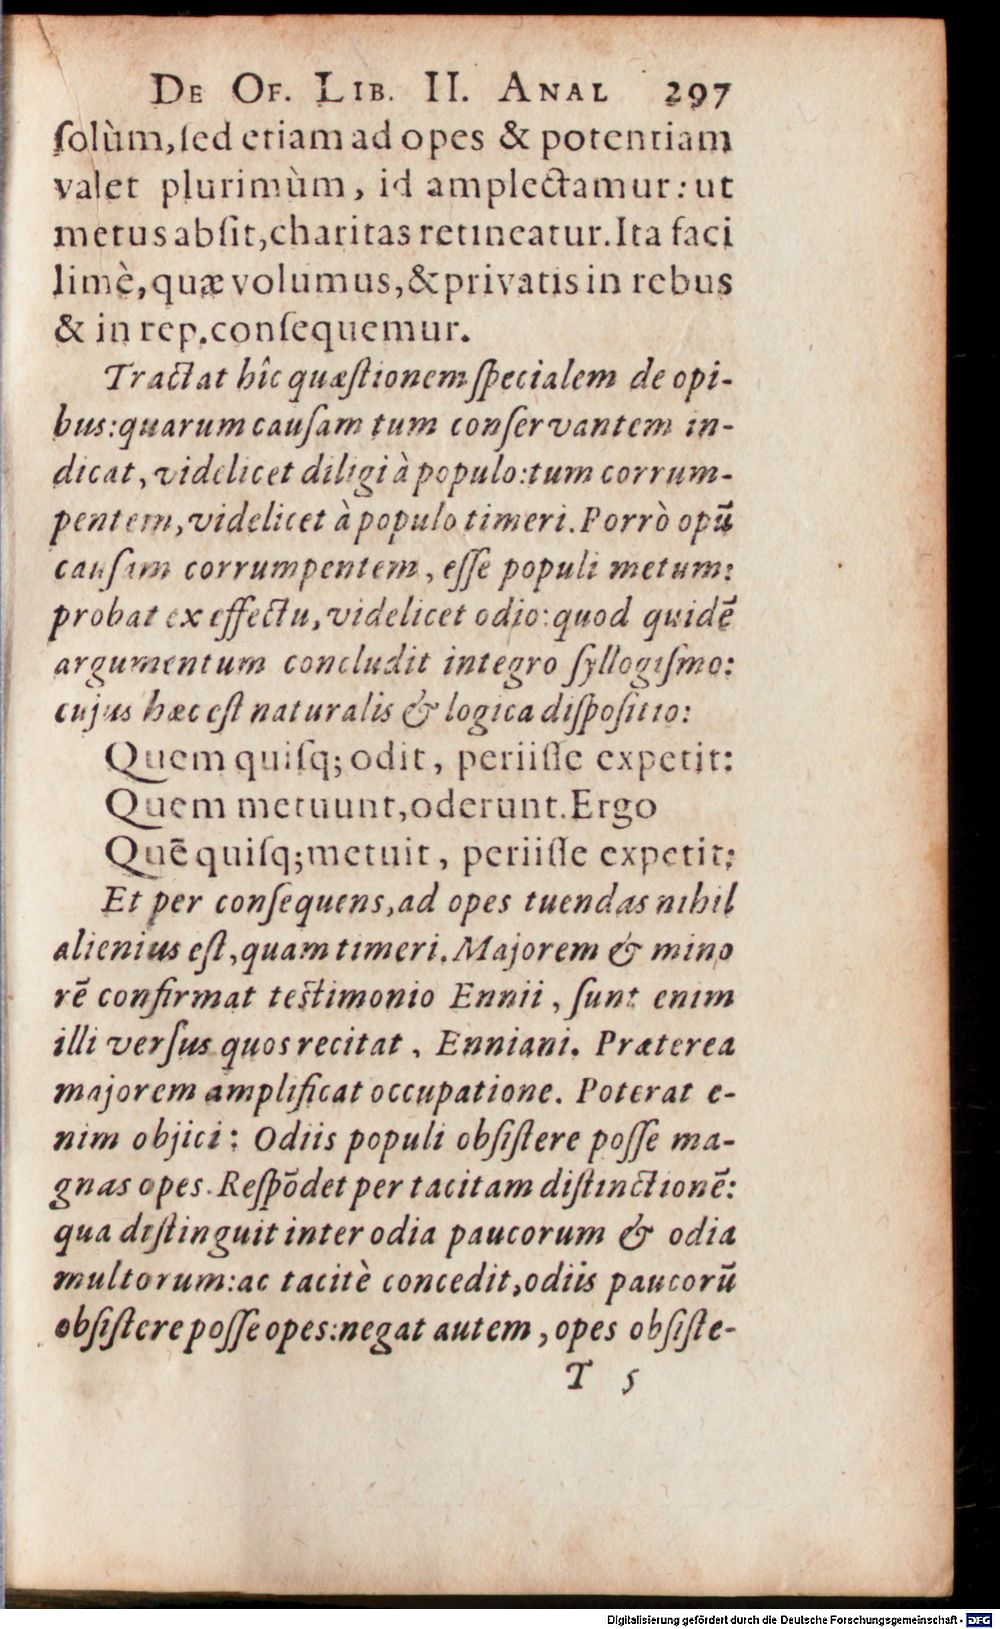 De Of. Lib. II. Anal 297
ſolùm, ſed etiam ad opes & potentiam
valet plurimùm, id amplectamur: ut
metus abſit, charitas retineatur. Ita faci
limè, quæ volumus, & privatis in rebus
& in rep. conſequemur.
Tractat hîc quæſtionem ſpecialem de opi-
bus: quarum cauſam tum conſervantem in-
dicat, videlicet diligi à populo: tum corrum-
pentem, videlicet à populo timeri. Porrò opū
cauſam corrumpentem, eſſe populi metum:
probat ex effectu, videlicet odio: quod quidē
argumentum concludit integro ſyllogiſmo:
cujus hæc eſt naturalis & logica diſpoſitio:
Quem quiſq; odit, periiſſe expetit:
Quem metuunt, oderunt. Ergo
Quē quiſq; metuit, periiſſe expetit:
Et per conſequens, ad opes tuendas nihil
alienius eſt, quam timeri. Majorem & mino
rē confirmat teſtimonio Ennii, ſunt enim
illi verſus quos recitat, Enniani. Præterea
majorem amplificat occupatione. Poterat e-
nim objici: Odiis populi obſiſtere poſſe ma-
gnas opes. Reſpōdet per tacitam diſtinctionē:
qua diſtinguit inter odia paucorum & odia
multorum: ac tacitè concedit, odiis paucorū
obſiſtere poſſe opes: negat autem, opes obſiſte-
T 5
Digitalisierung gefördert durch die Deutsche Forschungsgemeinschaft - DFG